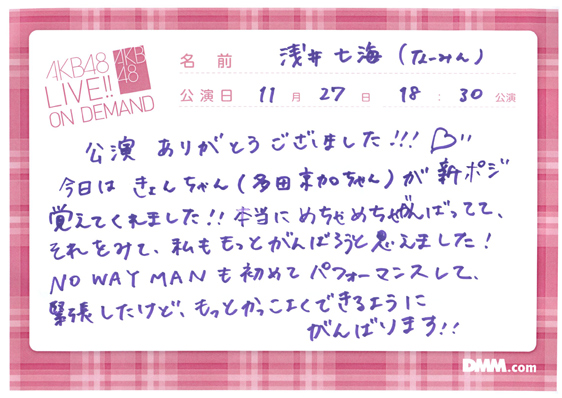 AKB48
LIVE!!
ON DEMAND
AKB
48
名前 浅井七海 (なーみん)
公演日 11月27日 18:30公演
公演 ありがとうございました!!!
今日は きょんちゃん(多田京加ちゃん)が 新ポジ
覚えてくれました!! 本当に めちゃめちゃがんばってて、
それをみて、私も もっとがんばろうと思えました!
NO WAY MAN も 初めて パフォーマンスして、
緊張したけど、もっとかっこよくできるように
がんばります!!
DMM.com